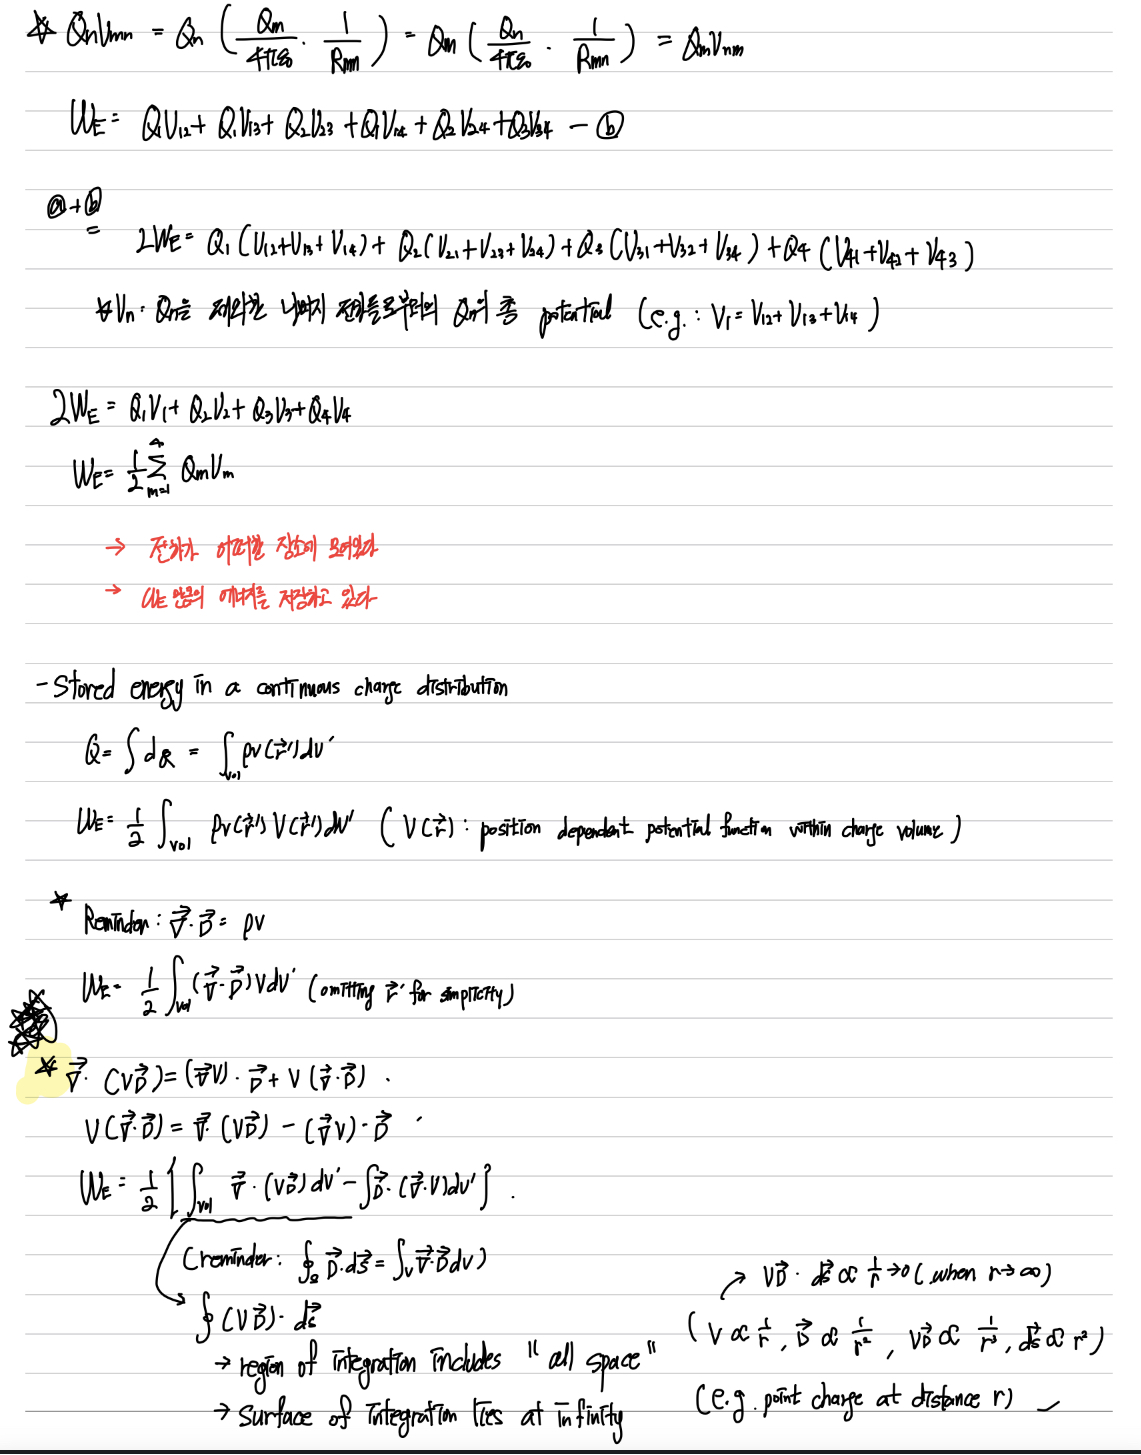 ☆ QnVmn = Qn ( Qm/4πε₀ · 1/Rmn ) = Qm ( Qn/4πε₀ · 1/Rmn ) = QmVnm
WE = Q1V12 + Q1V13 + Q2V23 + Q1V14 + Q2V24 + Q3V34 - ⓑ
ⓐ+ⓑ
= 2WE = Q1 (V12+V13+V14) + Q2 (V21+V23+V24) + Q3 (V31+V32+V34) + Q4 (V41+V42+V43)
☆Vn : Qn을 제외한 나머지 전하들로부터의 Qn의 총 potential (e.g. : V1 = V12+V13+V14)
2WE = Q1V1 + Q2V2 + Q3V3 + Q4V4
WE = 1/2 Σ_{m=1}^{4} QmVm
→ 전하가 어떠한 장소에 모여있다
→ WE 만큼의 에너지를 저장하고 있다
- Stored energy in a continuous charge distribution
Q = ∫ dQ = ∫vol ρv(r⃗')dv'
WE = 1/2 ∫vol ρv(r⃗')V(r⃗')dv' ( V(r⃗) : position dependent potential function within charge volume )
☆ Reminder : ∇⃗·D⃗ = ρv
WE = 1/2 ∫vol (∇⃗·D⃗)Vdv' (omitting r⃗' for simplicity)
☆ ∇⃗· (VD⃗) = (∇⃗V)·D⃗ + V(∇⃗·D⃗) .
V(∇⃗·D⃗) = ∇⃗·(VD⃗) - (∇⃗V)·D⃗
WE = 1/2 { ∫vol ∇⃗·(VD⃗)dv' - ∫D⃗·(∇⃗·V)dv' } .
(reminder : ∮s D⃗·ds⃗ = ∫v ∇⃗·D⃗dv)
∮ (VD⃗)·ds⃗
→ region of integration includes "all space"
→ surface of integration lies at infinity
→ VD⃗·ds⃗ ∝ 1/r → 0 (when r→∞)
( V ∝ 1/r , D⃗ ∝ 1/r² , VD⃗ ∝ 1/r³ , ds⃗ ∝ r² )
(e.g. point charge at distance r)